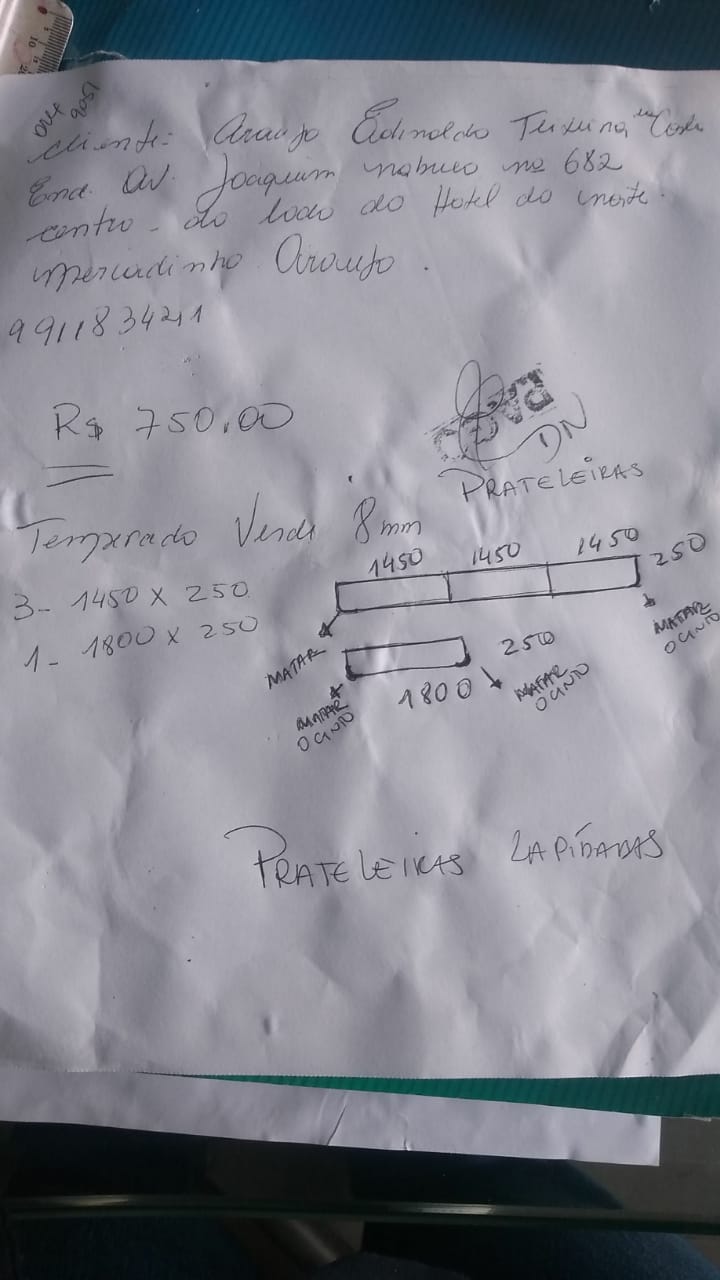 Cliente: Araujo Edinaldo Teixeira Costa
End. Av. Joaquim nabuco nº 682
centro - do lado do Hotel do norte.
mercadinho Araujo.
991183421
R$ 750.00
DN
PRATELEIRAS
Temperado Verde 8mm
3- 1450 X 250
1- 1800 X 250
1450 1450 1450 250
MATAR
MATAR
O CINTO
250
1800
MATAR
O CINTO
MATAR
O CINTO
PRATELEIRAS LAPÍDADAS